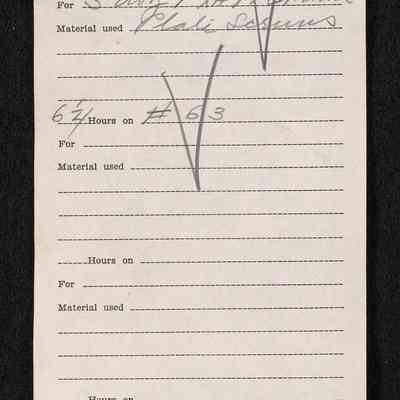 For
Material used Plate Screws
6 1/4 Hours on # 63
For
Material used
Hours on
For
Material used
Hours on